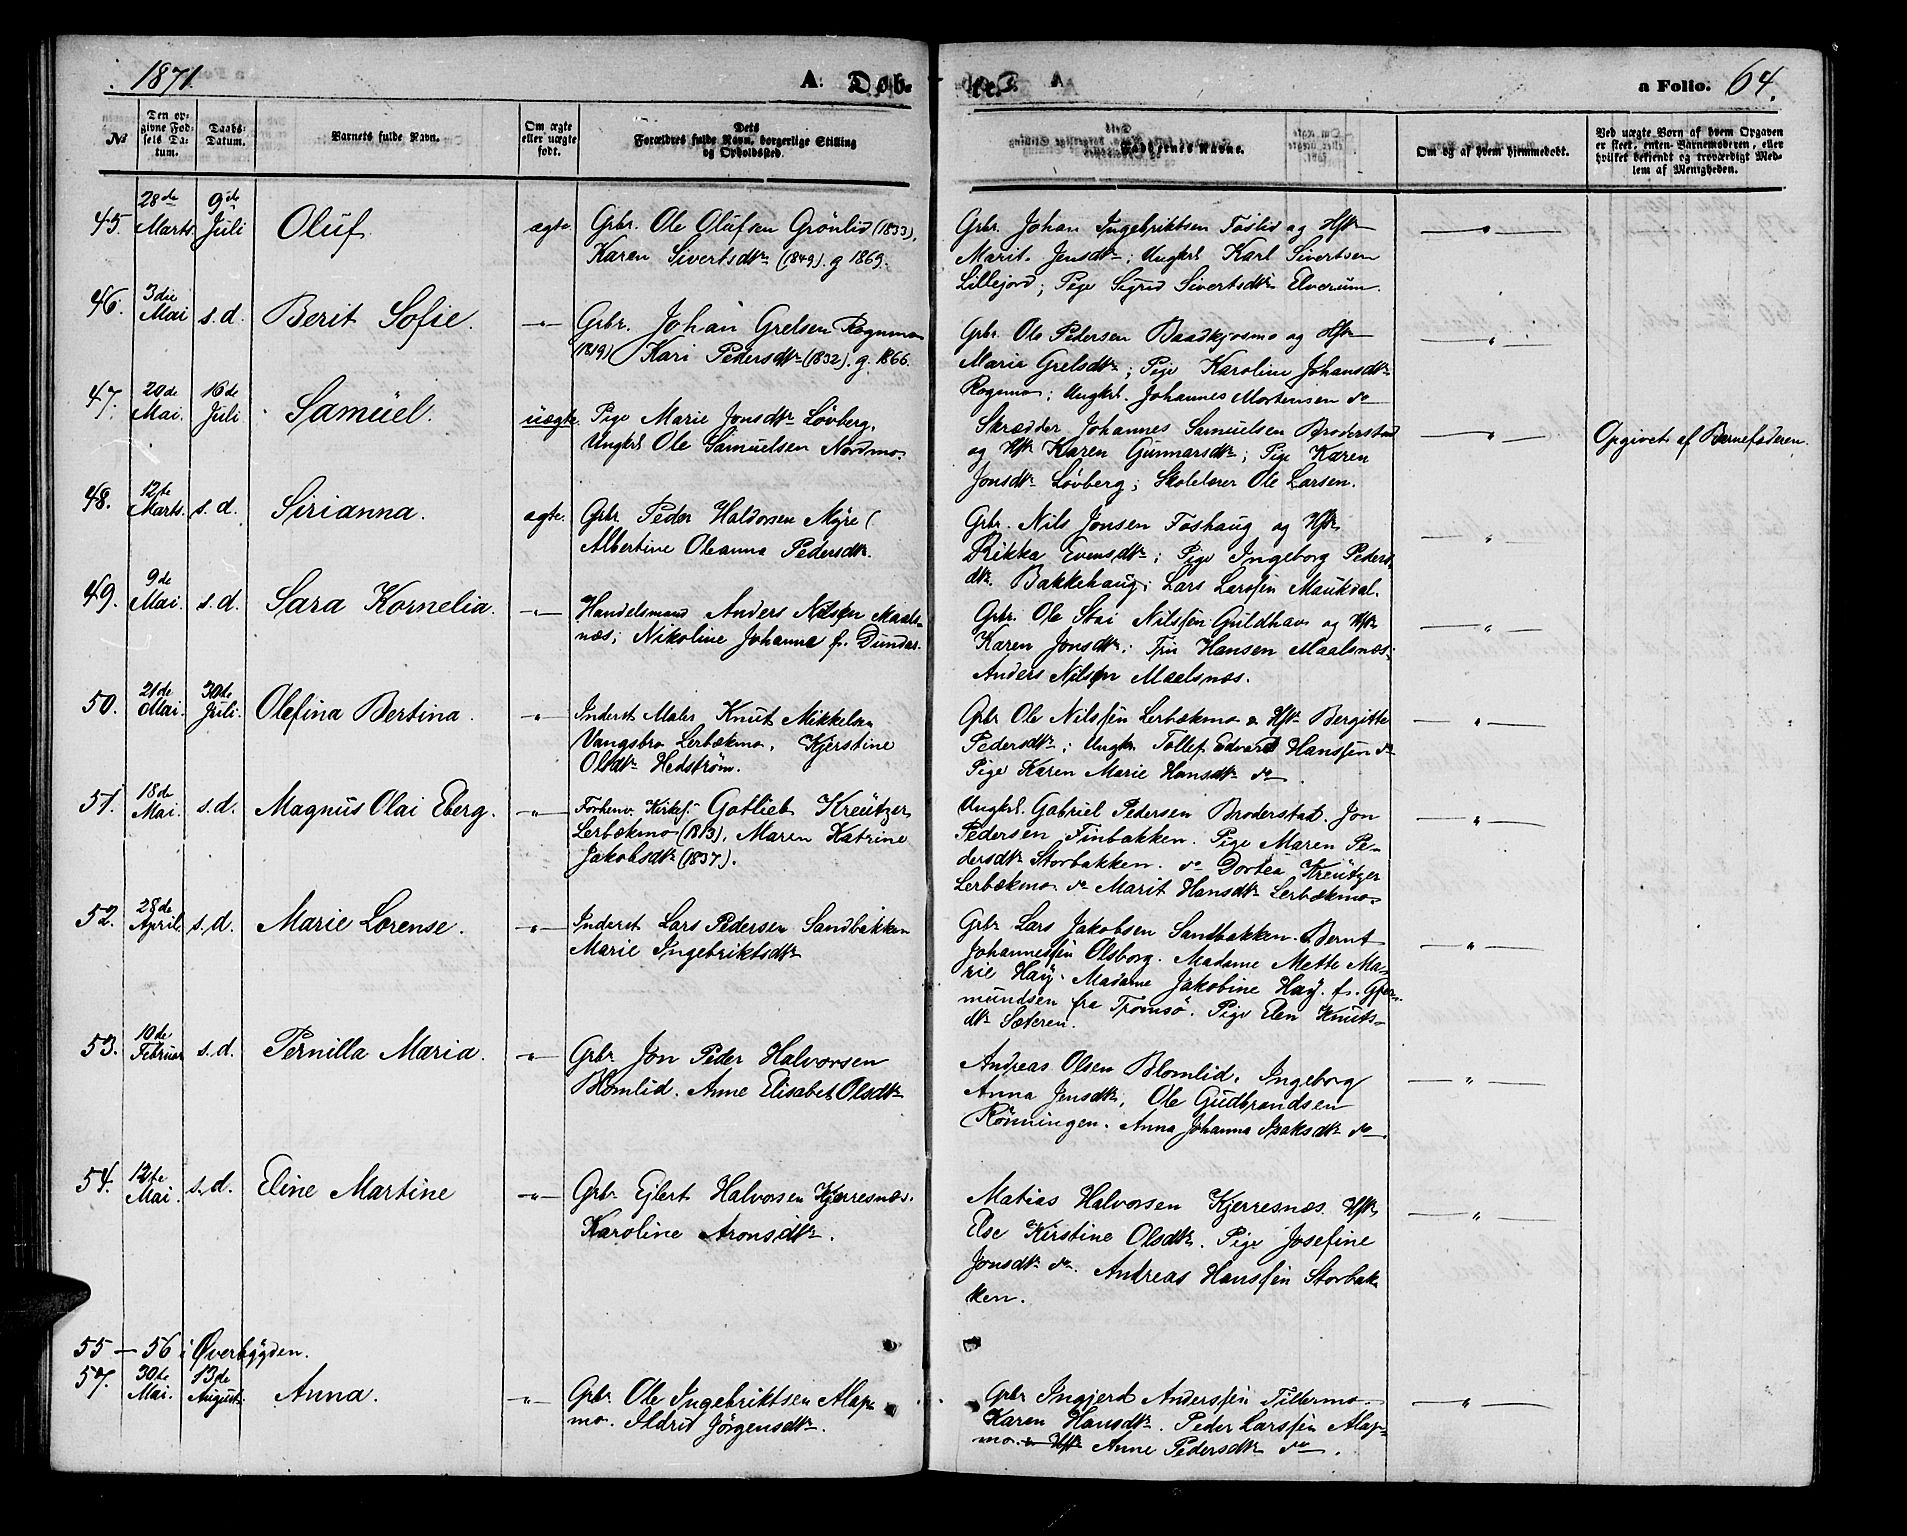 1871.
A. Døb-
te.
a Folio. 64.
№
Den op-
givne Fød-
sels Da-
tum.
Daabs-
Datum.
Barnets fulde Navn.
Om ægte
eller uægte
født.
Dets
Forældres fulde Navn, borgerlige Stilling
og Opholdssted.
Faddernes Navne.
Om og af hvem hjemmedøbt.
Ved uægte Børn af hvem Opgaven
er skeet, enten Barnemoderen, eller
hvilket bekjendt og troværdigt Med-
lem af Menigheden.
45. 28de Marts. 9de Juli Oluf. ægte. Grbr. Ole Olufsen Grønlid (1833),
Karen Sivertsdtr (1849). g 1869.
Grbr. Johan Ingebriktsen Foslid og Hstr
Marit Jensdtr; Ungkrl Karl Sivertsen
Lillejord; Pige Sigrid Sivertsdtr Elverum.
46. 3die Mai s.d. Berit Sofie. —"— Grbr. Johan Grelsen Rognmo
(1819) Kari Pedersdtr (1832). g. 1866.
Grbr. Ole Pedersen Baadkjosmo og Hstr
Maria Grelsdtr; Pige Karoline Johansdtr
Rognmo; Ungkrl. Johannes Mortensen do
47. 20de Mai. 16de Juli Samuel. uægte. Pige Marie Jonsdtr Løvberg.
Ungkrl Ole Samuelsen Nordmo.
Skrædder Johannes Samuelsen Broderstad
og Hstr Karen Gunnarsdtr; Pige Karen
Jonsdtr Løvberg; Skolelærer Ole Larsen.
Opgivet af Barnefaderen.
48. 12te Marts. s.d. Sirianna. ægte. Grbr Peder Haldorsen Myre (
Albertine Oleanna Pedersdtr.
Grbr. Nils Jonsen Foshaug og Hstr
Rikka Evensdtr; Pige Ingeborg Peders
dtr. Bakkehaug; Lars Larssen Maukdal.
49. 9de Mai. s.d. Sara Kornelia. —"— Handelsmand Anders Nilsen Maals-
næs; Nikoline Johanna f. Dundas.
Grbr. Ole Stai Nilssen Guldhav og Hstr
Karen Jonsdtr; Hansen Maalsnæs;
Anders Nilsen Maalsnæs.
50. 21de Mai. 30te Juli. Olefina Bertina. —"— Inderst Maler Knut Mikkelsen
Vangsbro Lerbækmo. Kjerstine
Olsdtr Hedstrøm.
Grbr Ole Nilssen Lerbækmo & Hstr Bergitte
Pedersdtr; Ungkr Tollef Edvard Hanssen do
Pige Karen Marie Hansdtr do
51. 18de Mai. s.d. Magnus Olai Eberg. —"— Forhenv. Kirkes. Gotlieb Kreutzer
Lerbækmo (1813). Maren Katrine
Jakobsdtr (1837).
Ungkrl. Gabriel Pedersen Broderstad. Jon
Pedersen Finbakken. Pige Maren Pe-
dersdtr Storbakken. do Dortea Kreutzer
Lerbækmo. do Marit Hansdtr Lerbækmo.
52. 28de April. s.d. Marie Lorense. —"— Inderst Lars Pedersen Sandbakken
Marie Ingebriktsdtr
Grbr Lars Jakobsen Sandbakken. Bernt
Johannessen Olsborg. Madame Mette Ma-
rie Hay. Madame Jakobine Hay. f.
mundsen fra Tromsö. Pige Elen Knuts-
dtr Sæteren.
53. 10de Februar s.d. Pernilla Maria. —"— Grbr Jon Peder Halvorsen
Blomlid. Anne Elisabet Olsdtr
Andreas Olsen Blomlid. Ingeborg
Anna Jensdtr, Ole Gudbrandsen
Rönningen. Anna Johanna Isaksdtr do
54. 12te Mai. s.d. Eline Martine —"— Grbr Ejlert Halvorsen Kjerresnæs.
Karoline Aronsdtr.
Matias Halvorsen Kjerresnæs. Hstr
Else Kirstine Olsdtr. Pige Josefine
Jonsdtr do. Andreas Hanssen Storbak
ken.
55 — 56 i Øverbygden.
57. 30te Mai. 13de August. Anna. —"— Grbr. Ole Ingebriktsen Alap
mo. Ildrid Jörgensdtr.
Grbr Ingjerd Anderssen Tillermo.
Karen Hansdtr. Peder Larssen Alap
mo. Hstr Anne Pedersdtr do.